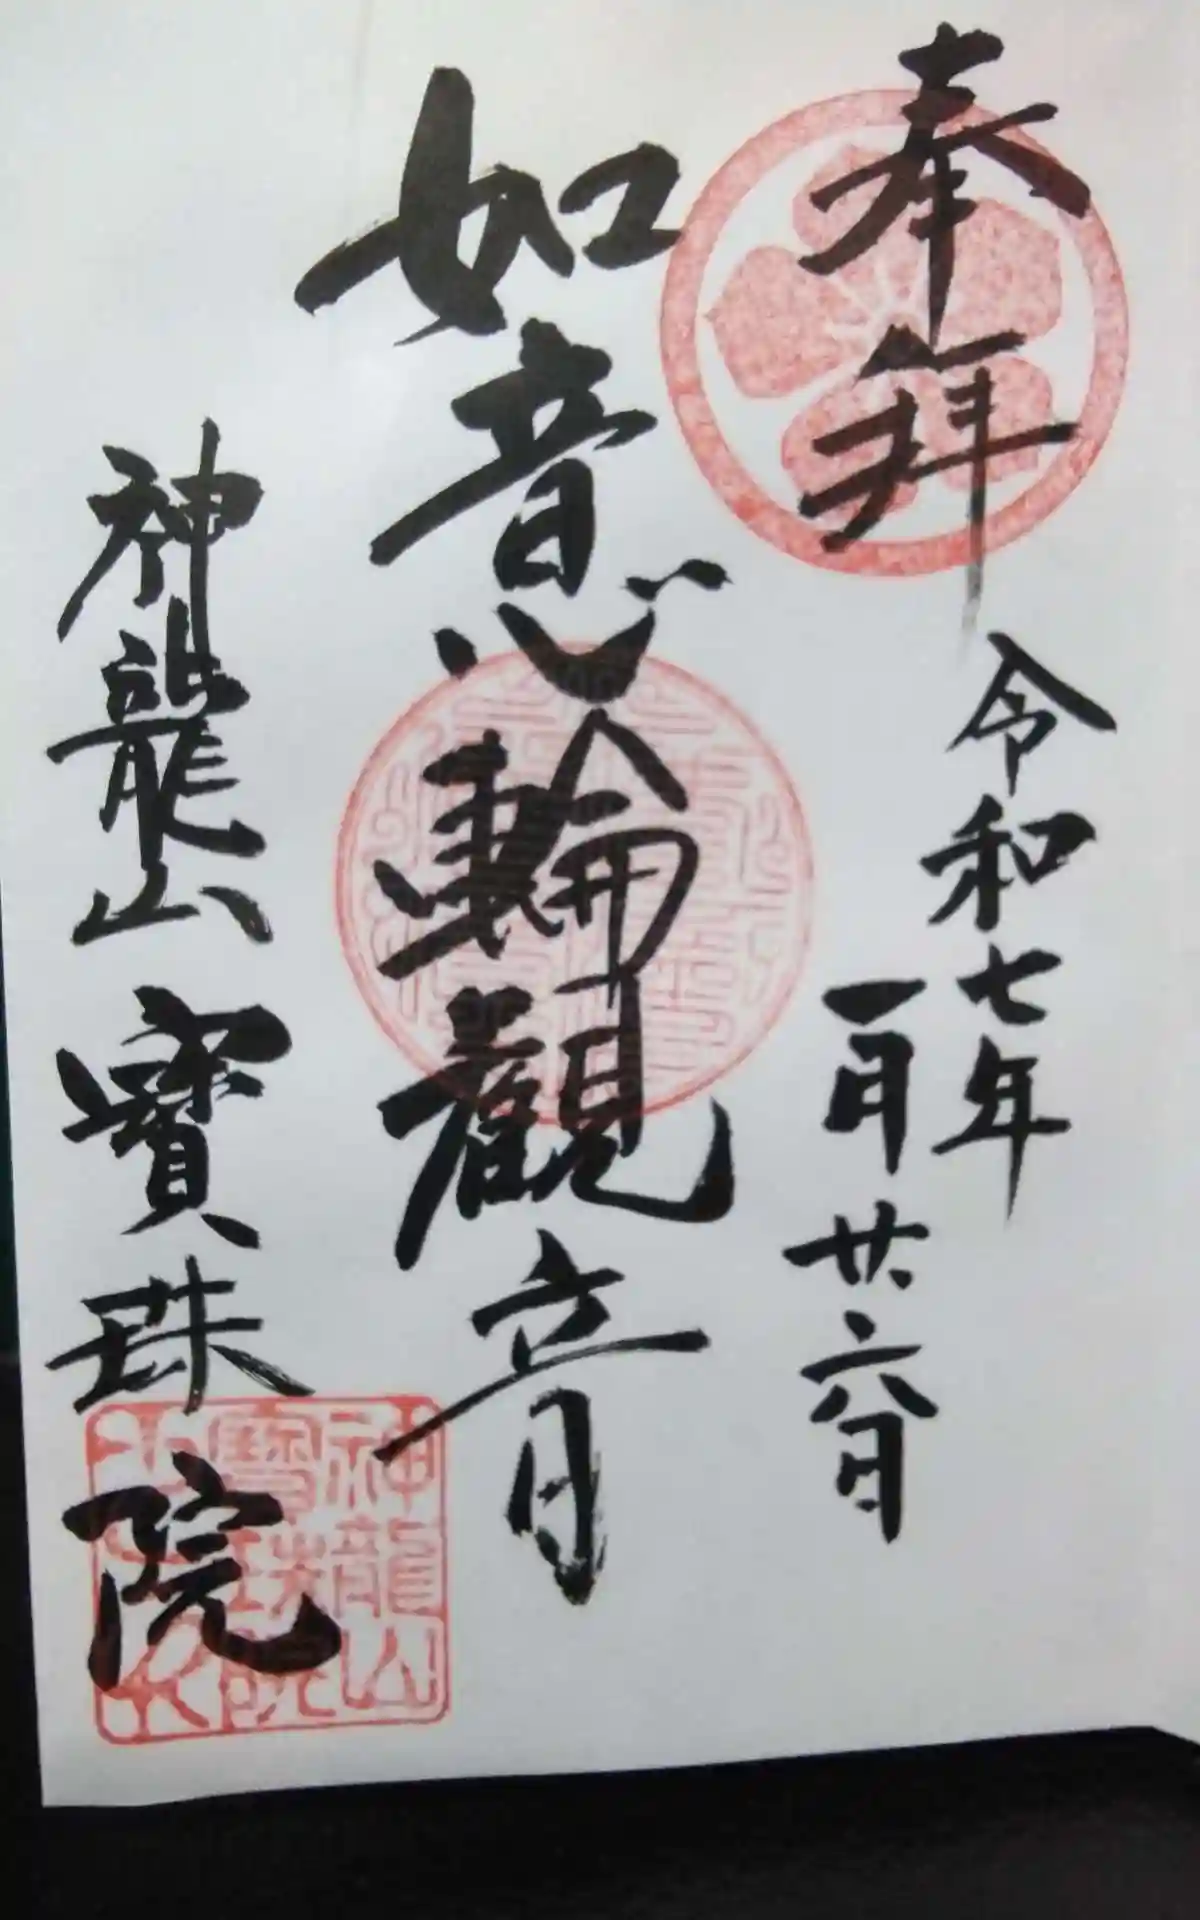 奉拝
令和七年
一月廿六日
如意輪觀音
神龍山寶珠院
神龍山
寶珠院